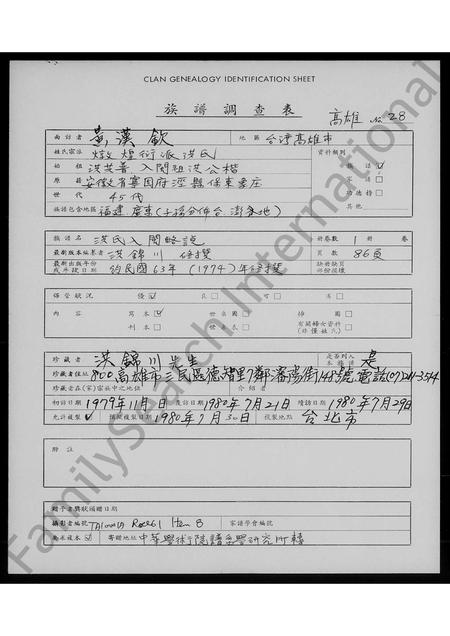 CLAN GENEALOGY IDENTIFICATION SHEET
族譜調查表
高雄 No. 28
面訪者 黃漢欽 地區 台灣高雄市
姓氏宗派 燉煌衍派洪氏 資料類別
始祖 洪芸善 入閩祖洪公楷 族譜 ✓
原籍 安徽省寧國府涇縣保東 宗譜
世代 45代 功德榜
族譜包含地區 福建.廣東 其他
族譜名 洪氏入閩略說 冊卷數 1 冊 卷
最新版本編纂者 洪錦川 修撰 頁數 86頁
最新出版年份或斗限日期 約民國63年(1974)年修撰 缺冊缺頁部份損壞
保管狀況 優 良 可 劣
內容 寫本 世系圖 掃圖
刊本 世系表 有關婦女資料(非僅姓氏)
珍藏者 洪錦川先生 是否列入本族譜 是
珍藏者住址 800高雄市三民區德智里7鄰瀋陽街148號電話(07)241-3544
珍藏者在(家)宗族中之地位 介紹者
初訪日期 1979年11月 日 覆訪日期 1980年7月21日 續訪日期 1980年7月29日
允許複製 ✓ 攝影複製日期 1980年7月30日 複製地點 台北市
附註
贈予者獎狀頒贈日期
攝影者編號 Item 8 家譜學會編號
需求複本 寄贈地址 中華學術院譜系學研究所轉
FamilySearch International